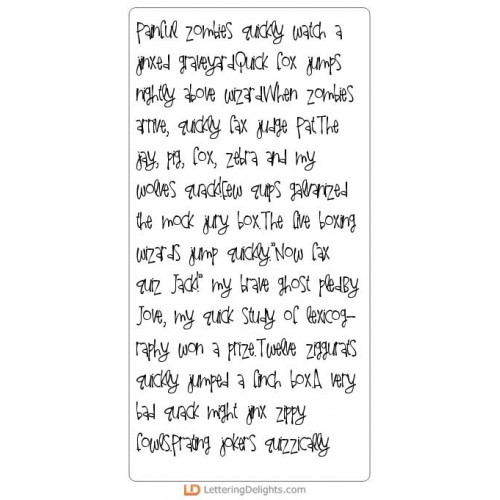 Painful zombies quickly watch a
jinxed graveyard.Quick fox jumps
nightly above wizard.When zombies
arrive, quickly fax judge Pat.The
jay, pig, fox, zebra and my
wolves quack!Few quips galvanized
the mock jury box.The five boxing
wizards jump quickly."Now fax
quiz Jack!" my brave ghost pled.By
Jove, my quick study of lexicog-
raphy won a prize.Twelve ziggurats
quickly jumped a finch box.A very
bad quack might jinx zippy
fowls.Prating jokers quizzically
LD LetteringDelights.com